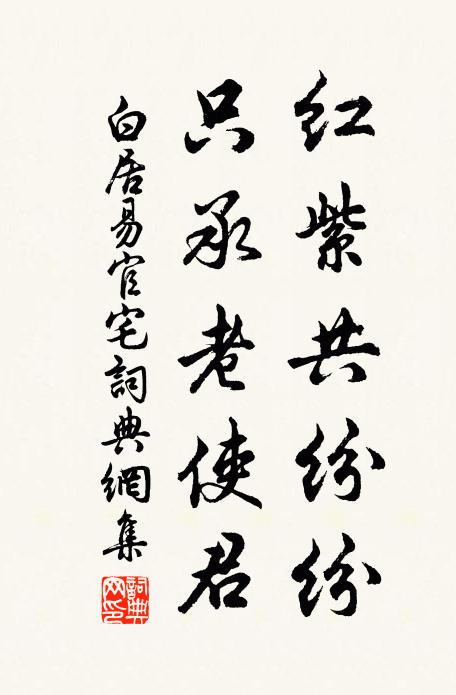 红紫共纷纷
只承老使君
白居易官宅詞典網集
詞典网印